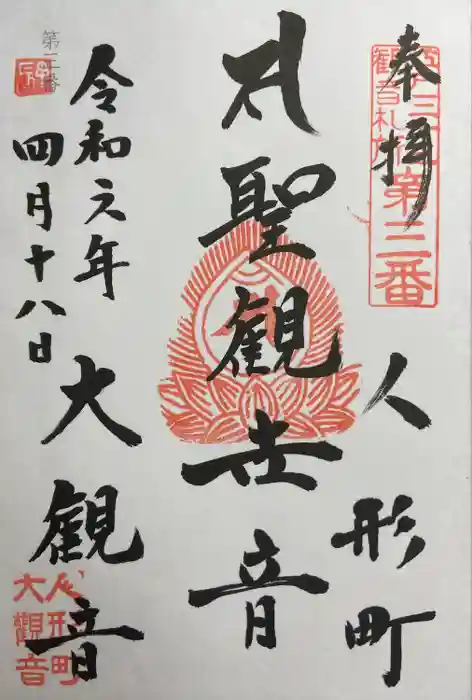 奉拝
江戸三十三
観音札所
第三番
人形町
聖観世音
大観音
令和元年
四月十八日
第三番
人形町
大觀音